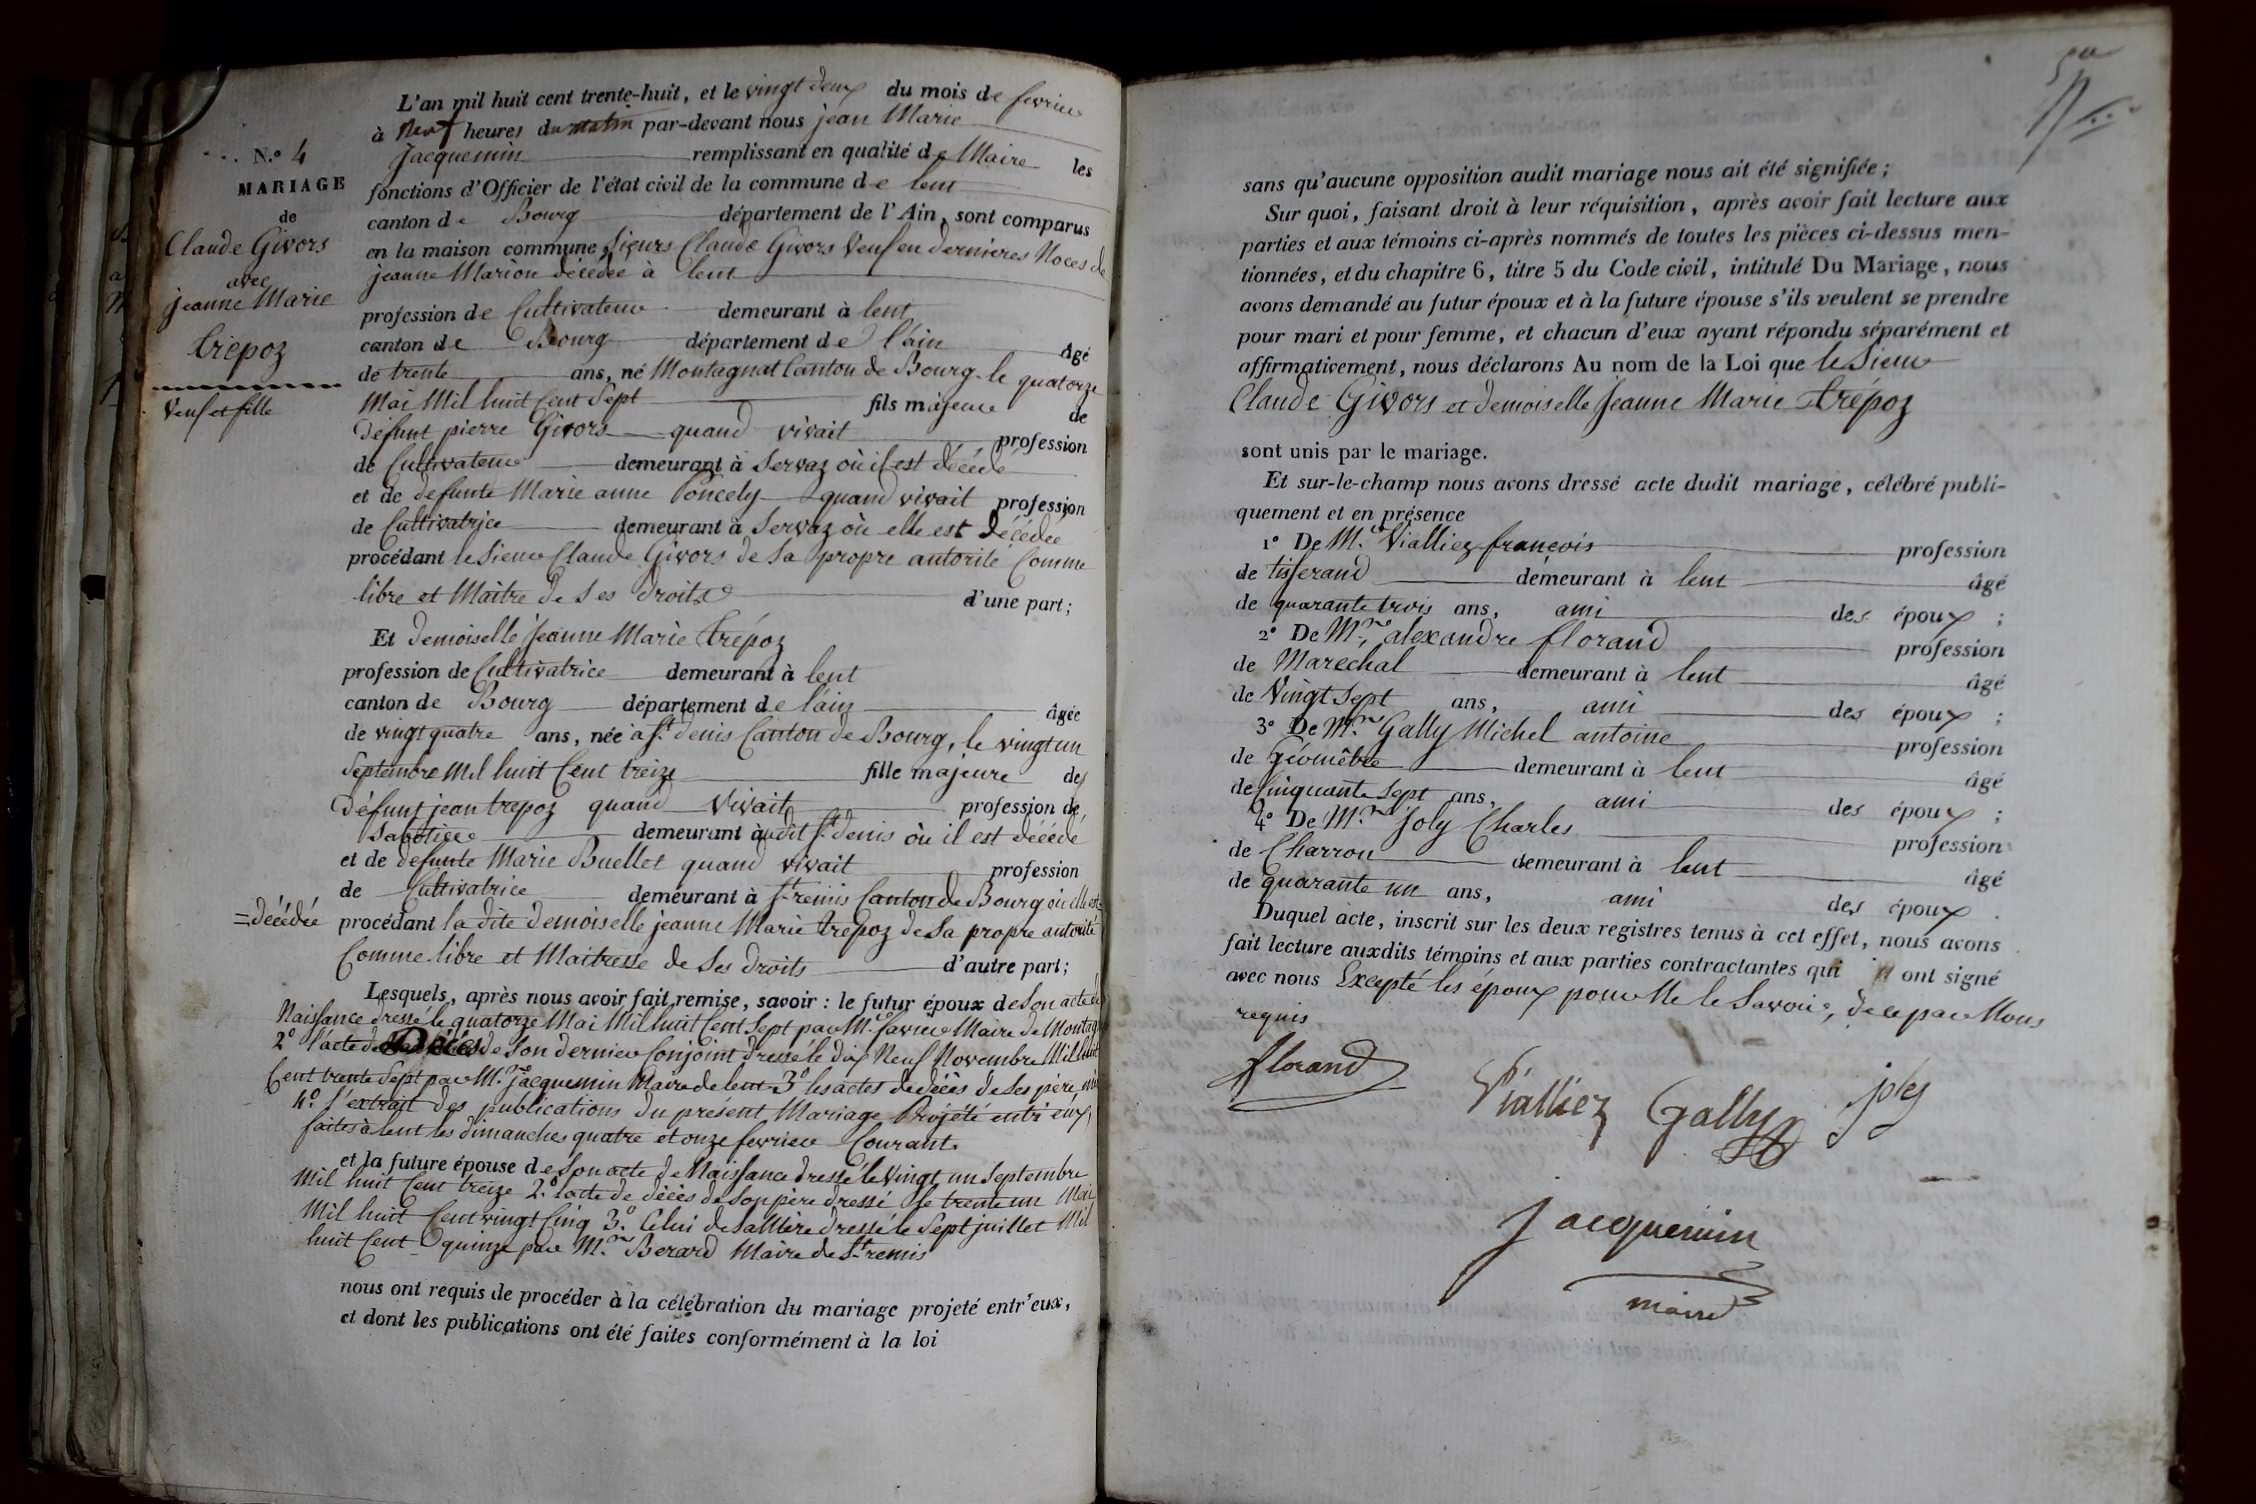 N.º 4
MARIAGE
de
Claude Givors
avec
jeanne Marie
trépoz
Veuf et fille
L'an mil huit cent trente-huit, et le vingt deux du mois de fevrier
à Neuf heures du matin par-devant nous jean Marie
Jacquemin remplissant en qualité de Maire les
fonctions d'Officier de l'état civil de la commune de lent
canton de Bourg département de l'Ain, sont comparus
en la maison commune, Sieurs Claude Givors Veuf en dernieres Noces de
jeanne Marion décédée à lent
profession de Cultivateur demeurant à lent
canton de Bourg département de l'ain Âgé
de trente ans, né Montagnat Canton de Bourg le quatorze
Mai Mil huit Cent Sept fils majeur de
défunt pierre Givors quand vivait profession
de Cultivateur demeurant à Servaz où il est décédé
et de defunte Marie anne Poncety quand vivait profession
de Cultivatrice demeurant à Servaz où elle est décédée
procédant le Sieur Claude Givors de Sa propre autorité Comme
libre et Maître de Ses droits d'une part;
Et demoiselle Jeanne Marie trépoz
profession de Cultivatrice demeurant à lent
canton de Bourg département de l'ain âgée
de vingt quatre ans, née à St. denis Canton de Bourg, le vingt un
Septembre Mil huit Cent treize fille majeure des
défunt jean trepoz quand Vivait profession de
Sabotier demeurant audit St. denis où il est décédé
et de defunte Marie Buellet quand vivait profession
de Cultivatrice demeurant à St. remis Canton de Bourg où elle est
=décédée procédant la dite demoiselle jeanne Marie trepoz de Sa propre autorité
Comme libre et Maitresse de Ses droits d'autre part;
Lesquels, après nous avoir fait remise, savoir: le futur époux de Son acte de
Naissance dressé le quatorze Mai Mil huit Cent Sept par Mr. Maire de Montag
2º l'acte de Décès de Son dernier Conjoint dressé le dix Neuf Novembre Mil huit
Cent trente Sept par Mr. jacquemin Maire de lent 3º les actes de décès de Ses père,
4º l'extrait des publications du présent Mariage Projété entr'eux,
faites à lent les dimanches quatre et onze fevrier Courant.
et la future épouse de Son acte de Naissance dressé le Vingt un Septembre
Mil huit Cent treize 2º l'acte de décès de Son père dressé le trente un Mai
Mil huit Cent vingt Cinq 3º Celui de Sa Mère dressé le Sept juillet Mil
huit Cent quinze par Mr. Berard Maire de St. remis
nous ont requis de procéder à la célébration du mariage projeté entr'eux,
et dont les publications ont été faites conformément à la loi
sans qu'aucune opposition audit mariage nous ait été signifiée;
Sur quoi, faisant droit à leur réquisition, après avoir fait lecture aux
parties et aux témoins ci-après nommés de toutes les pièces ci-dessus men-
tionnées, et du chapitre 6, titre 5 du Code civil, intitulé Du Mariage, nous
avons demandé au futur époux et à la future épouse s'ils veulent se prendre
pour mari et pour femme, et chacun d'eux ayant répondu séparément et
affirmativement, nous déclarons Au nom de la Loi que le Sieur
Claude Givors et demoiselle Jeanne Marie trépoz
sont unis par le mariage.
Et sur-le-champ nous avons dressé acte dudit mariage, célébré publi-
quement et en présence
1º De Mr. Vialliez françois profession
de tisserand demeurant à lent âgé
de quarante trois ans, ami des époux ;
2º De Mr. alexandre florand profession
de Maréchal demeurant à lent âgé
de Vingt Sept ans, ami des époux ;
3º De Mr. Gally Michel antoine profession
de Géomêtre demeurant à lent âgé
de Cinquante Sept ans, ami des époux ;
4º De Mr. Joly Charles profession
de Charron demeurant à lent âgé
de quarante un ans, ami des époux .
Duquel acte, inscrit sur les deux registres tenus à cet effet, nous avons
fait lecture auxdits témoins et aux parties contractantes qui ont signé
avec nous Excepté les époux pour Ne le Savoir, de ce par Nous
requis
florand
Vialliez Gally joly
Jacquemin
maire